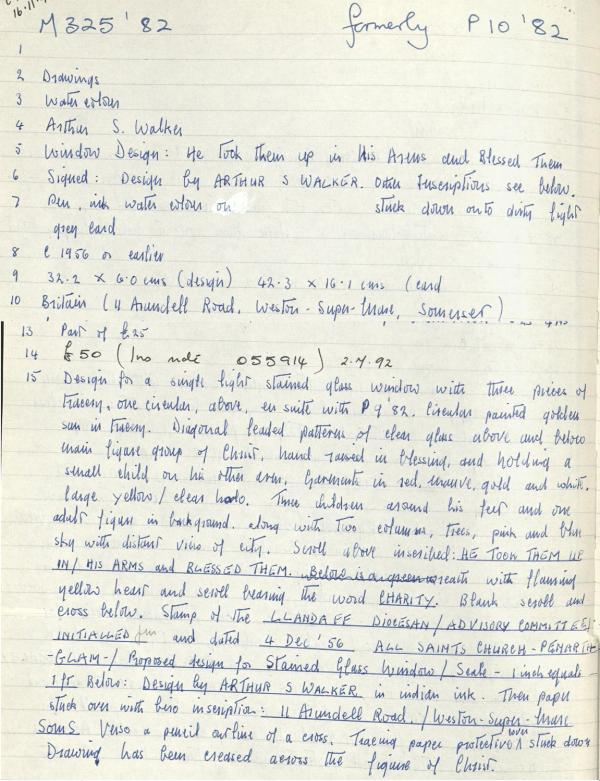 16.11.
M325'82 formerly P10'82
1
2 Drawings
3 Water colour
4 Arthur S. Walker
5 Window Design: He Took Them up in His Arms and Blessed Them
6 Signed: Design by ARTHUR S WALKER. Other Inscriptions see below.
7 Pen, ink water colour on stuck down onto dirty light
grey card
8 c 1956 or earlier
9 32.2 x 6.0 cms (design) 42.3 x 16.1 cms (card
10 Britain (11 Arundell Road, Weston-Super-Mare, Somerset)
13 Part of £25
14 £50 (Ino note 055914) 2.7.92
15 Design for a single light stained glass window with three pieces of
tracery, one circular, above, en suite with P9'82. Circular painted golden
sun in tracery. Diagonal leaded patterns of clear glass above and below
main figure group of Christ, hand raised in blessing, and holding a
small child on his other arm, Garments in red, mauve, gold and white.
large yellow/clear halo. Three children around his feet and one
adult figure in background. along with two columns, trees, pink and blue
sky with distant view of city. Scroll above inscribed: HE TOOK THEM UP
IN/HIS ARMS and BLESSED THEM. Below is a green wreath with flaming
yellow heart and scroll bearing the word CHARITY. Blank scroll and
cross below. Stamp of the LLANDAFF DIOCESAN/ADVISORY COMMITTEE/
INITIALLED and dated 4 DEC '56 ALL SAINTS CHURCH-PENARTH
-GLAM-/Proposed design for Stained Glass Window/Scale-1 inch equals-
1 ft Below: Design by ARTHUR S WALKER in indian ink. Then paper
stuck over with biro inscription: 11 Arundell Road./Weston-Super-Mare
Soms Verso a pencil outline of a cross. Tracing paper protective cover stuck down
Drawing has been creased across the figure of Christ.